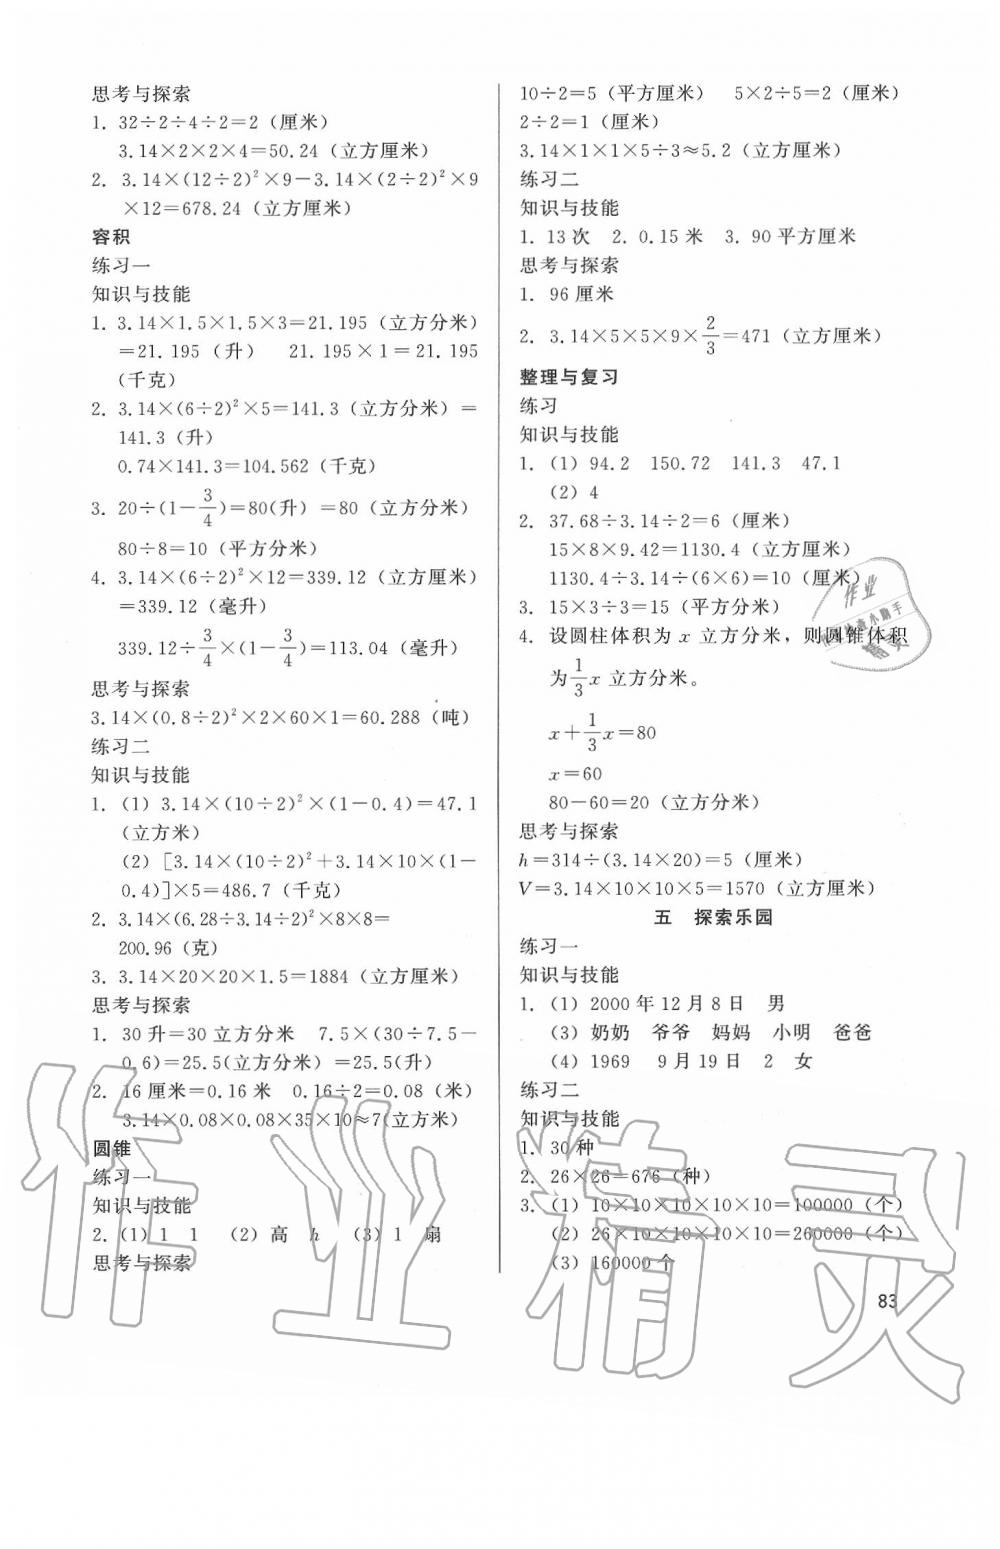 思考与探索
1. 32÷2÷4÷2=2（厘米）
3.14×2×2×4=50.24（立方厘米）
2. 3.14×(12÷2)²×9－3.14×(2÷2)²×9
×12=678.24（立方厘米）
容积
练习一
知识与技能
1. 3.14×1.5×1.5×3=21.195（立方分米）
=21.195（升） 21.195×1=21.195
（千克）
2. 3.14×(6÷2)²×5=141.3（立方分米）=
141.3（升）
0.74×141.3=104.562（千克）
3. 20÷(1－3/4)=80(升）=80（立方分米）
80÷8=10（平方分米）
4. 3.14×(6÷2)²×12=339.12（立方厘米）
=339.12（毫升）
339.12÷3/4×(1－3/4)=113.04（毫升）
思考与探索
3.14×(0.8÷2)²×2×60×1=60.288（吨）
练习二
知识与技能
1.（1）3.14×(10÷2)²×(1－0.4)=47.1
（立方米）
（2）[3.14×(10÷2)²+3.14×10×(1－
0.4)]×5=486.7（千克）
2. 3.14×(6.28÷3.14÷2)²×8×8=
200.96（克）
3. 3.14×20×20×1.5=1884（立方厘米）
思考与探索
1. 30升=30立方分米 7.5×(30÷7.5－
0.6)=25.5(立方分米）=25.5(升）
2. 16厘米=0.16米 0.16÷2=0.08（米）
3.14×0.08×0.08×35×10≈7(立方米）
圆锥
练习一
知识与技能
2.（1）1 1 （2）高 h （3）1 扇
思考与探索
10÷2=5（平方厘米） 5×2÷5=2（厘米）
2÷2=1（厘米）
3.14×1×1×5÷3≈5.2（立方厘米）
练习二
知识与技能
1. 13次 2. 0.15米 3. 90平方厘米
思考与探索
1. 96厘米
2. 3.14×5×5×9×2/3=471（立方厘米）
整理与复习
练习
知识与技能
1.（1）94.2 150.72 141.3 47.1
（2）4
2. 37.68÷3.14÷2=6（厘米）
15×8×9.42=1130.4（立方厘米）
1130.4÷3.14÷(6×6)=10（厘米）
3. 15×3÷3=15（平方分米）
4. 设圆柱体积为 x 立方分米，则圆锥体积
为1/3x 立方分米。
x+1/3x=80
x=60
80－60=20（立方分米）
思考与探索
h=314÷(3.14×20)=5（厘米）
V=3.14×10×10×5=1570（立方厘米）
五 探索乐园
练习一
知识与技能
1.（1）2000年12月8日 男
（3）奶奶 爷爷 妈妈 小明 爸爸
（4）1969 9月19日 2 女
练习二
知识与技能
1. 30种
2. 26×26=676（种）
3.（1）10×10×10×10×10=100000（个）
（2）26×10×10×10×10=260000（个）
（3）160000个
83
作业精灵
作业
精灵